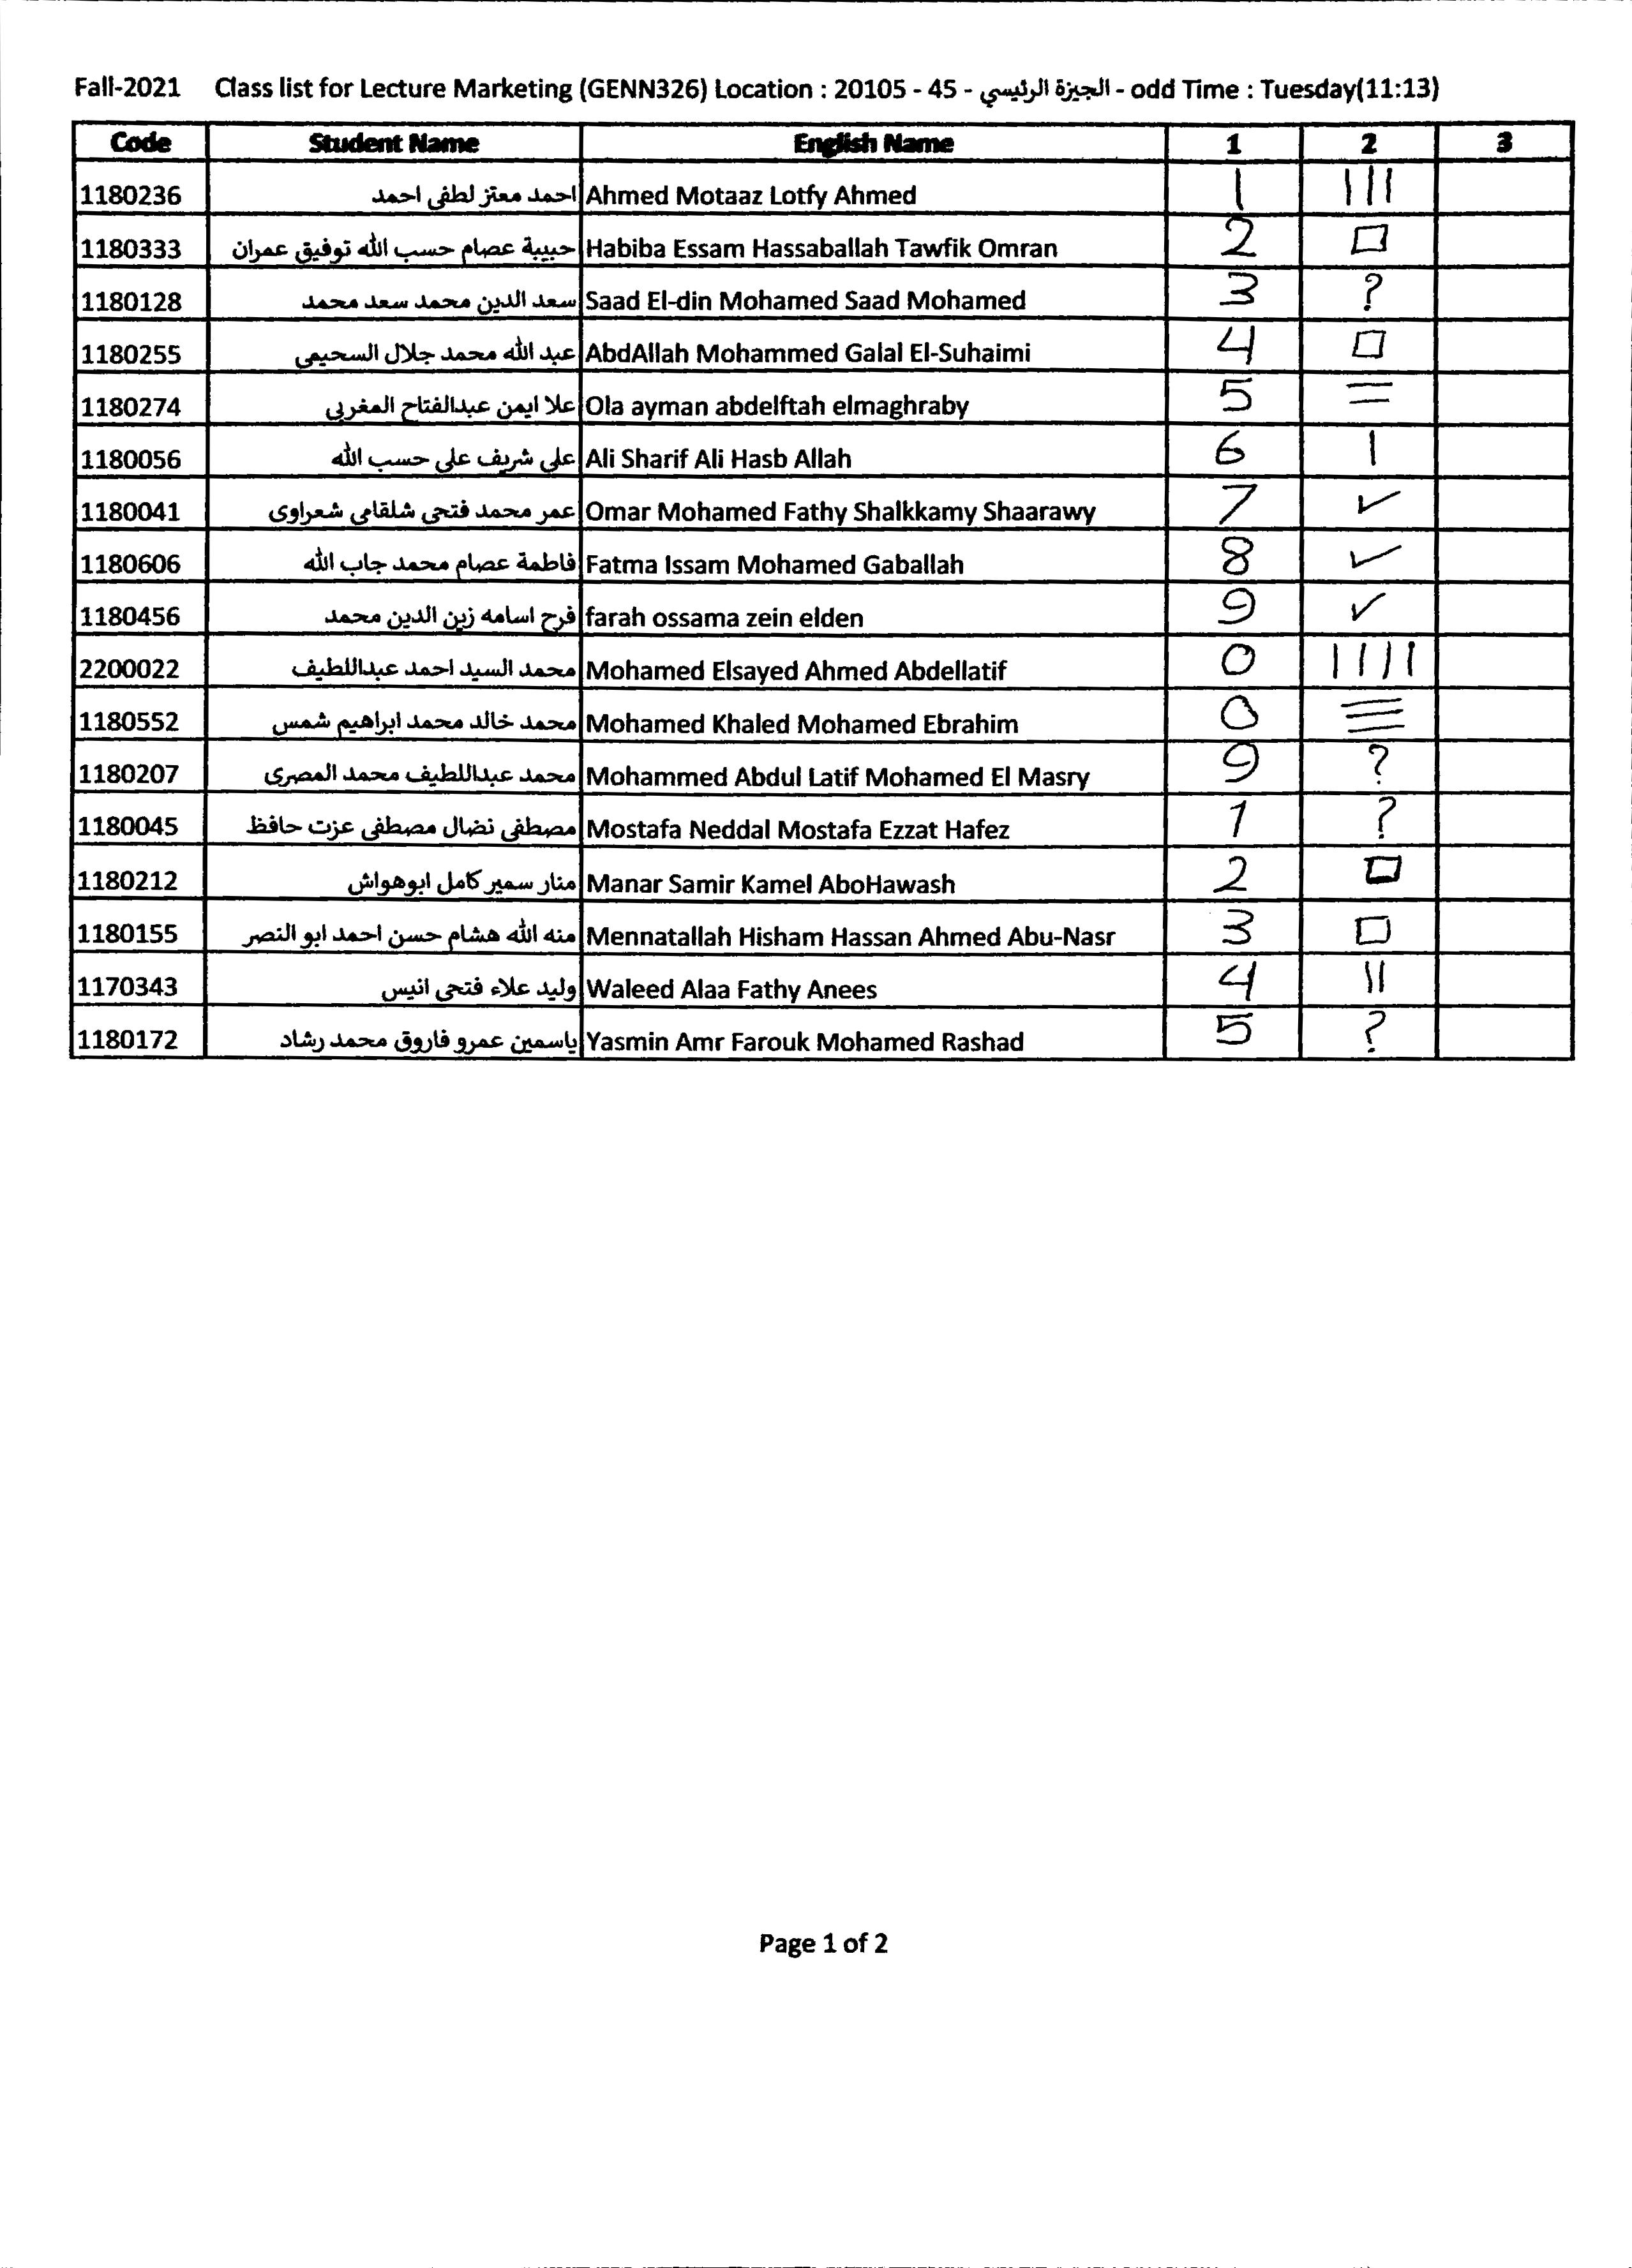 Fall-2021 Class list for Lecture Marketing (GENN326) Location : 20105 - 45 - الجيزة الرئيسي - odd Time : Tuesday(11:13)
Code Student Name English Name 1 2 3
1180236 احمد معتز لطفى احمد Ahmed Motaaz Lotfy Ahmed 1 |||
1180333 حبيبة عصام حسب الله توفيق عمران Habiba Essam Hassaballah Tawfik Omran 2 □
1180128 سعد الدين محمد سعد محمد Saad El-din Mohamed Saad Mohamed 3 ?
1180255 عبد الله محمد جلال السحيمى AbdAllah Mohammed Galal El-Suhaimi 4 □
1180274 علا ايمن عبدالفتاح المغربى Ola ayman abdelftah elmaghraby 5 =
1180056 على شريف على حسب الله Ali Sharif Ali Hasb Allah 6 |
1180041 عمر محمد فتحى شلقامى شعراوى Omar Mohamed Fathy Shalkkamy Shaarawy 7 ✓
1180606 فاطمة عصام محمد جاب الله Fatma Issam Mohamed Gaballah 8 ✓
1180456 فرح اسامه زين الدين محمد farah ossama zein elden 9 ✓
2200022 محمد السيد احمد عبداللطيف Mohamed Elsayed Ahmed Abdellatif 0 ||||
1180552 محمد خالد محمد ابراهيم شمس Mohamed Khaled Mohamed Ebrahim 0 ≡
1180207 محمد عبداللطيف محمد المصرى Mohammed Abdul Latif Mohamed El Masry 9 ?
1180045 مصطفى نضال مصطفى عزت حافظ Mostafa Neddal Mostafa Ezzat Hafez 1 ?
1180212 منار سمير كامل ابوهواش Manar Samir Kamel AboHawash 2 □
1180155 منه الله هشام حسن احمد ابو النصر Mennatallah Hisham Hassan Ahmed Abu-Nasr 3 □
1170343 وليد علاء فتحى انيس Waleed Alaa Fathy Anees 4 ||
1180172 ياسمين عمرو فاروق محمد رشاد Yasmin Amr Farouk Mohamed Rashad 5 ?
Page 1 of 2